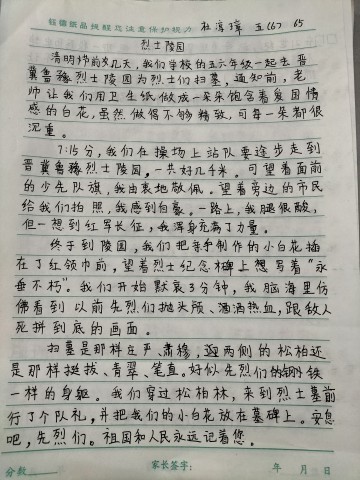 钱德纸品线醒您注意保护视力
杜淳璋 五(6) 65
烈士陵园
清明节前夕几天,我们学校的五六年级一起去晋
冀鲁豫烈士陵园为烈士们扫墓,通知前,老
师让我们用卫生纸做成一朵朵饱含着爱国情
感的白花,虽然做得不够精致,可每一朵都很
沉重。
7:15分,我们在操场上站队要徒步走到
晋冀鲁豫烈士陵园,一共好几千米。可望着面前
的少先队旗,我由衷地敬佩。望着旁边的市民
给我们拍照,我感到自豪。一路上,我腿很酸,
但一想到红军长征,我浑身充满了力量。
终于到陵园,我们把每手制作的小白花插
在了红领巾前,望着烈士纪念碑上想写着“永
垂不朽”。我们开始默哀3分钟,我脑海里仿
佛看到以前先烈们抛头颅、洒洒热血,跟敌人
死拼到底的画面。
扫墓是那样庄严、肃穆,两侧的松柏还
是那样挺拔、青翠、笔直。好似先烈们的钢铁
一样的身躯。我们穿过松柏林,来到烈士墓前
行了个队礼,并把我们的小白花放在墓碑上。安息
吧,先烈们。祖国和人民永远记着您。
分数 家长签字: 年 月 日